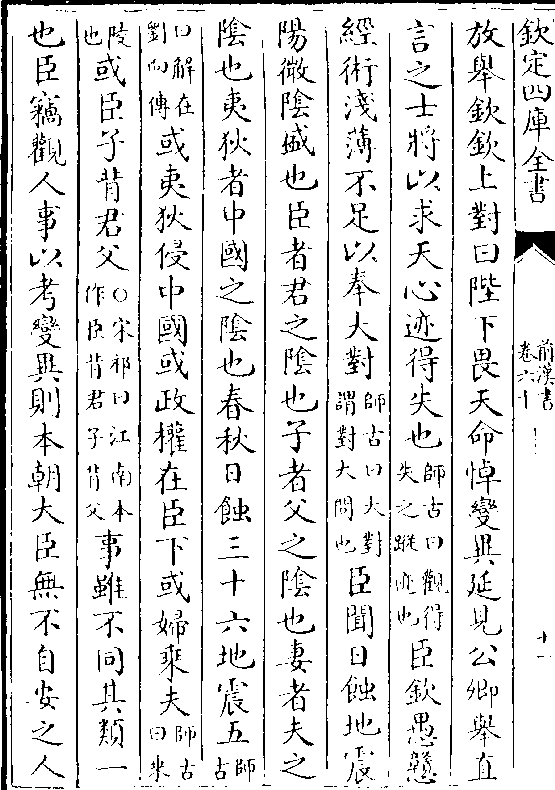 欽定四庫全書
前漢書
卷六十
十一
放舉欽欽上對曰陛下畏天命悼變異延見公卿舉直
言之士將以求天心迹得失也師古曰觀得失之蹤迹也臣欽愚戇
經術淺薄不足以奉大對師古曰大對謂對大問也臣聞日蝕地震
陽微陰盛也臣者君之陰也子者父之陰也妻者夫之
陰也夷狄者中國之陰也春秋日蝕三十六地震五師古
曰解在劉向傳或夷狄侵中國或政權在臣下或婦乘夫師古曰乘
陵也或臣子背君父○宋祁曰江南本作臣背君子背父事雖不同其類一
也臣竊觀人事以考變異則本朝大臣無不自安之人